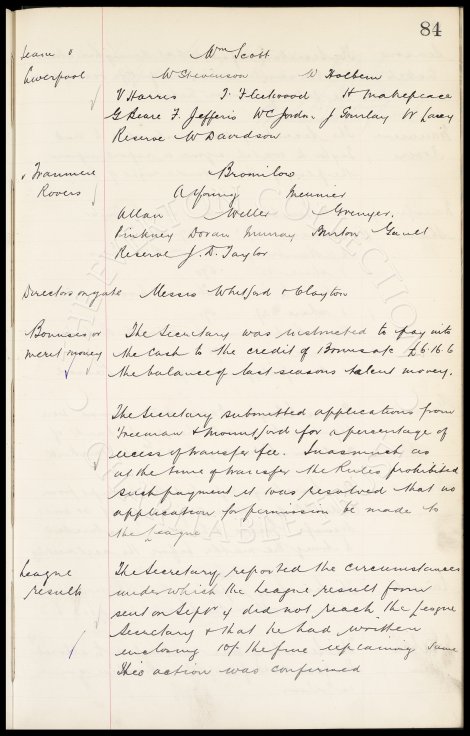 84
Team v Wm Scott
Liverpool W Stevenson W Holbem
V Harris T. Fleetwood H Makepeace
G Beare F. Jefferis W C Jordan J Gourlay W Lacey
Reserve W Davidson
v Tranmere Bromilow
Rovers A Young Meunier
Allan Weller Grenyer.
Pinkney Doran Murray Burton Gault
Reserve J. D. Taylor
Directors on gate Messrs Whitford & Clayton
Bonuses or The Secretary was instructed to pay into
merit money the Cash to the credit of Bonus a/c £6.16.6
the balance of last seasons talent money.
The Secretary submitted applications from
Freeman & Mountford for a percentage of
excess of transfer fee. Inasmuch as
at the time of transfer the Rules prohibited
such payment it was resolved that no
application for permission be made to
the League
League The Secretary reported the circumstances
results under which the League result form
sent on Septr 4 did not reach the League
Secretary & that he had written
enclosing 10/- the fine re same
This action was confirmed